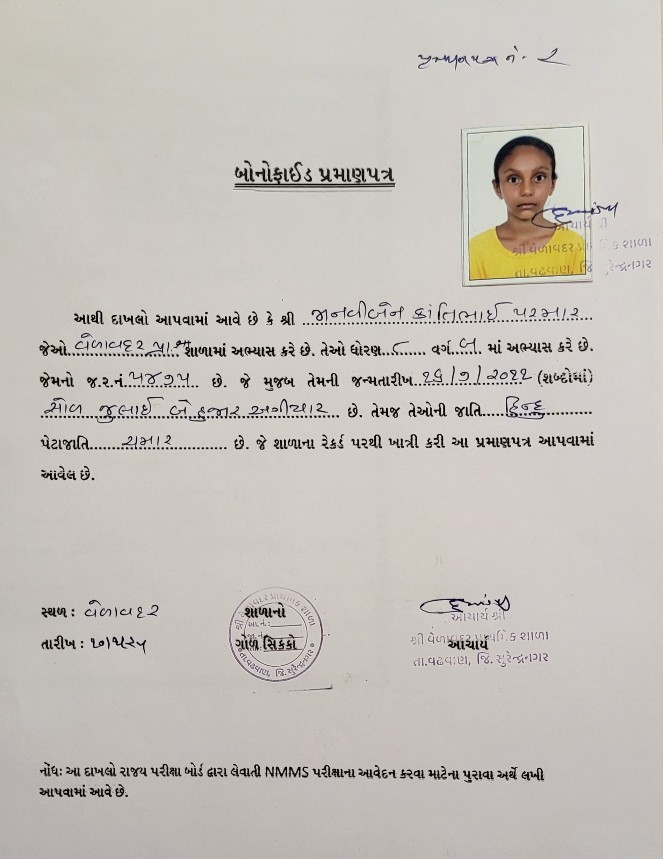 પ્રમાણપત્ર નં- ૨
બોનોફાઈડ પ્રમાણપત્ર
આચાર્ય શ્રી
શ્રી વેળાવદર પ્રાથમિક શાળા
તા.વઢવાણ, જિ. સુરેન્દ્રનગર
આથી દાખલો આપવામાં આવે છે કે શ્રી જાનવીબેન કાંતિભાઈ પરમાર
જેઓ વેળાવદર પ્રા.શા શાળામાં અભ્યાસ કરે છે. તેઓ ધોરણ ૮ વર્ગ બ માં અભ્યાસ કરે છે.
જેમનો જ.ર.નં. ૫૪૭૫ છે. જે મુજબ તેમની જન્મતારીખ ૧૬/૭/૨૦૧૧ (શબ્દોમાં)
સોળ જુલાઈ બે હજાર અગીયાર છે. તેમજ તેઓની જાતિ હિન્દુ
પેટાજાતિ ચમાર છે. જે શાળાના રેકર્ડ પરથી ખાત્રી કરી આ પ્રમાણપત્ર આપવામાં
આવેલ છે.
સ્થળ : વેળાવદર
તારીખ :
શાળાનો
ગોળ સિક્કો
શ્રી વેળાવદર પ્રાથમિક શાળા
તા.વઢવાણ, જિ.સુરેન્દ્રનગર
આચાર્ય શ્રી
શ્રી વેળાવદર પ્રાથમિક શાળા
આચાર્ય
તા.વઢવાણ, જિ. સુરેન્દ્રનગર
નોંધ: આ દાખલો રાજય પરીક્ષા બોર્ડ દ્વારા લેવાતી NMMS પરીક્ષાના આવેદન કરવા માટેના પુરાવા અર્થે લખી
આપવામાં આવે છે.